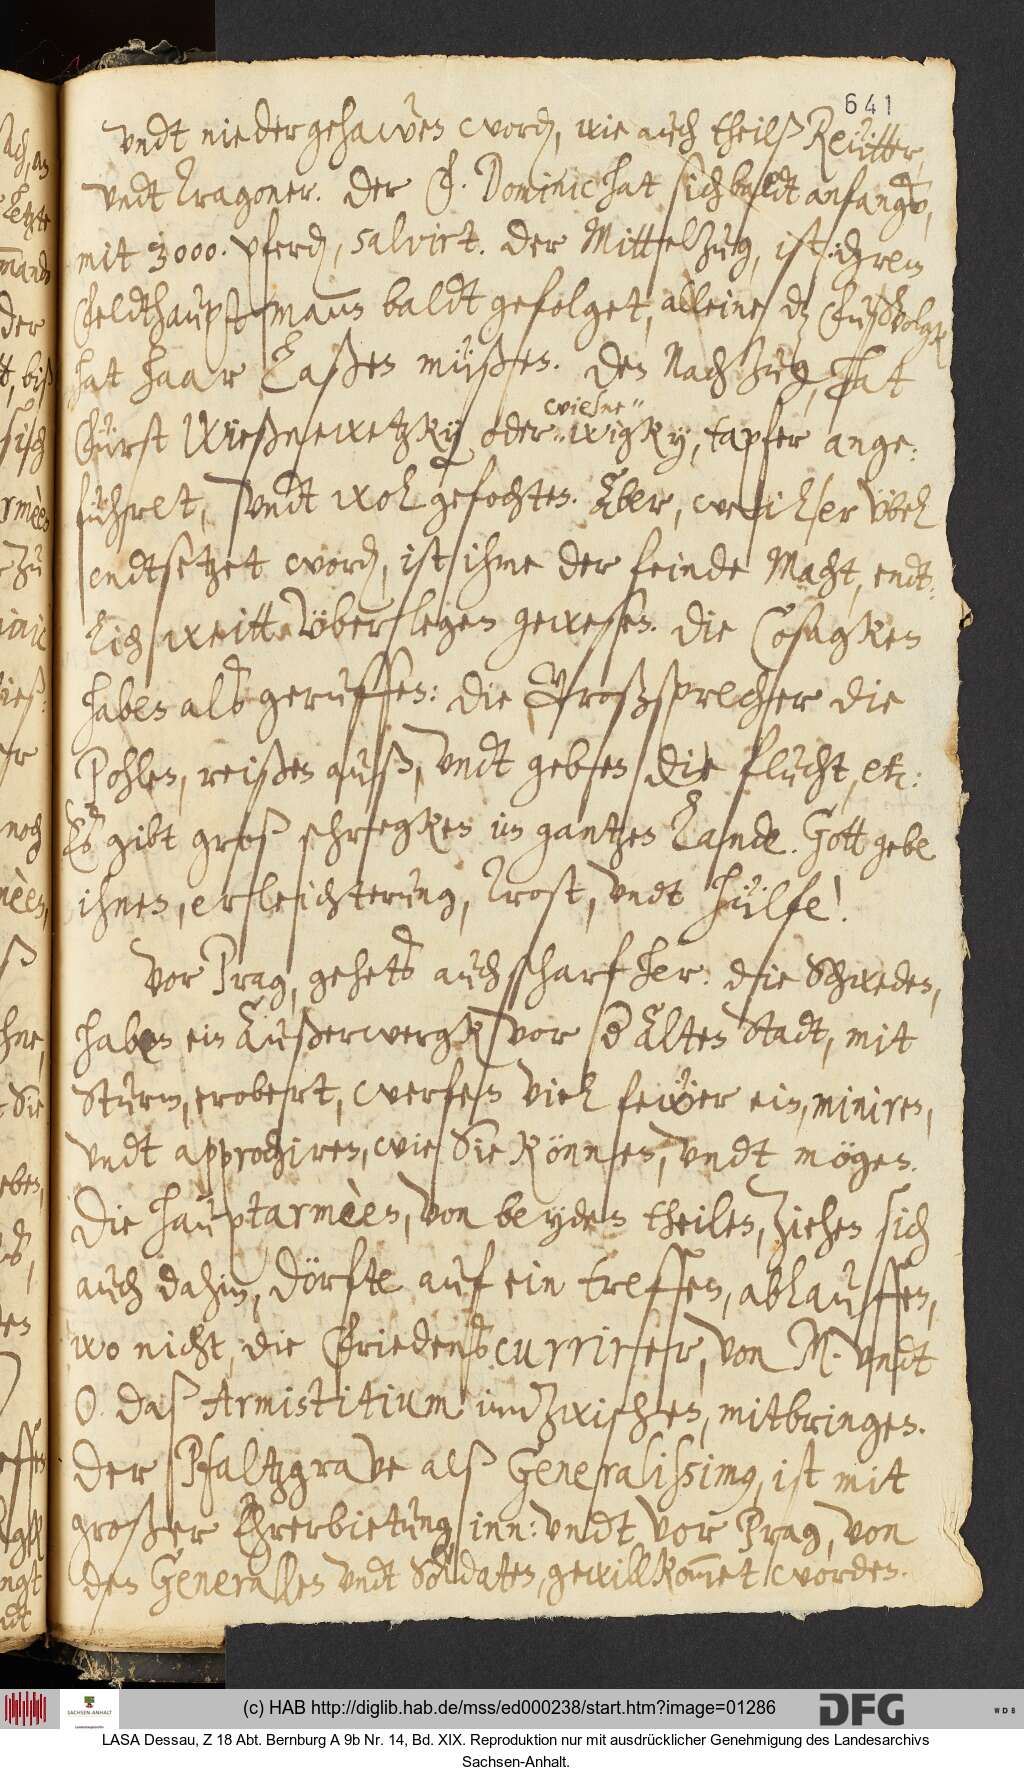 641
undt niedergehawen word, wie auch theilß Reütter,
undt Tragoner. Der F. Dominic hat sich baldt anfangs,
mit 3000. pferd, salvirt. Der Mittelzug, ist ihrem
Feldthauptmann baldt gefolget, alleine dz Fußvolgk
hat haar laßen müßen. Den Nachzug, hat
wiesne"
Fürst Wießnewetzky oder "wigky, tapfer ange:
führet, undt wol gefochten. Aber, weil er übel
endtsetzet word, ist ihme der feinde Macht, endt:
lich weitt überlegen gewesen. Die Cosagken
haben als geruffen: die Großsprecher die
Pohlen, reißen auß, undt geben die flucht, etc:
Es gibt groß schregken im gantzen Lande. Gott gebe
ihnen, erleichterung, Trost, undt hülfe!
Vor Prag, gehets auch scharf her: die Schweden,
haben ein Außerwergk vor der Alten Stadt, mit
Sturm, erobert, werfen viel feüer ein, miniren,
undt approchiren, wie Sie können, undt mögen.
Die hauptarmèen, von beyden theilen, ziehen sich
auch dahin, dörfte auf ein treffen, ablauffen,
wo nicht, die Friedens currirer, von M. undt
O. daß Armistitium inndzwischen, mitbringen.
Der Pfaltzgrave alß Generalissimus, ist mit
großer Ehrerbietung inn: undt vor Prag, von
den Generallen undt Soldaten, gewillkommet worden.
(c) HAB http://diglib.hab.de/mss/ed000238/start.htm?image=01286
DFG
WDB
SACHSEN-ANHALT
LASA Dessau, Z 18 Abt. Bernburg A 9b Nr. 14, Bd. XIX. Reproduktion nur mit ausdrücklicher Genehmigung des Landesarchivs
Sachsen-Anhalt.